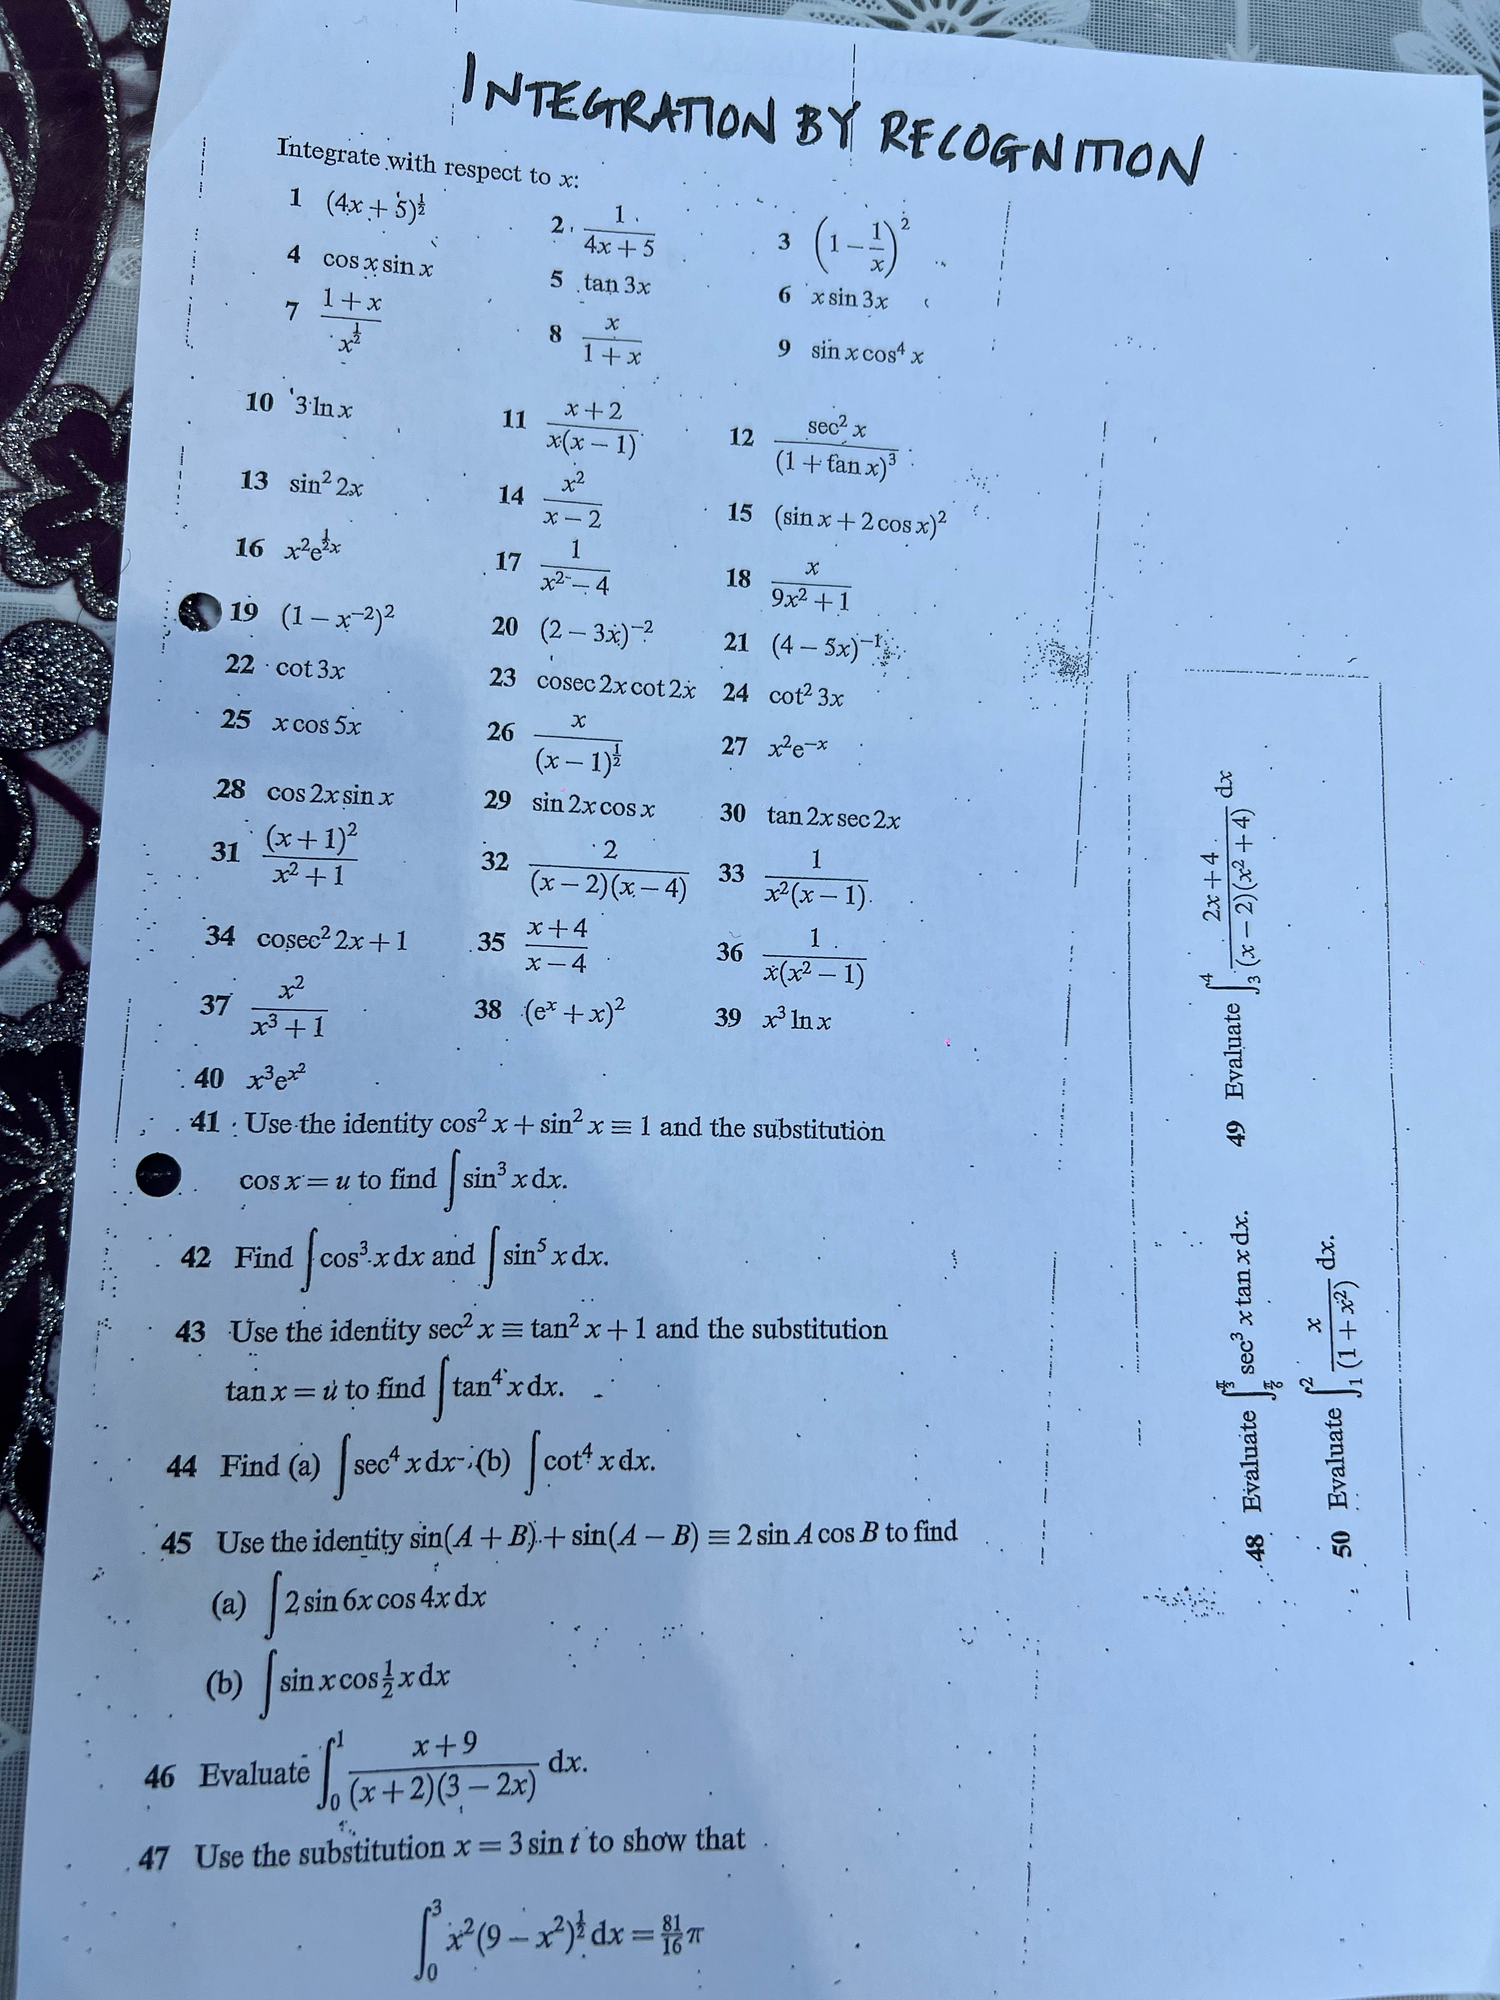 INTEGRATION BY RECOGNITION
Integrate with respect to x:
1 (4x + 5)^½ 2 1/(4x + 5) 3 (1 − 1/x)²
4 cos x sin x 5 tan 3x 6 x sin 3x
7 (1 + x)/x^½ 8 x/(1 + x) 9 sin x cos⁴ x
10 3 ln x 11 (x + 2)/(x(x − 1)) 12 sec² x/(1 + tan x)³
13 sin² 2x 14 x²/(x − 2) 15 (sin x + 2 cos x)²
16 x²e^(½x) 17 1/(x² − 4) 18 x/(9x² + 1)
19 (1 − x⁻²)² 20 (2 − 3x)⁻² 21 (4 − 5x)⁻¹
22 cot 3x 23 cosec 2x cot 2x 24 cot² 3x
25 x cos 5x 26 x/(x − 1)^½ 27 x²e⁻ˣ
28 cos 2x sin x 29 sin 2x cos x 30 tan 2x sec 2x
31 (x + 1)²/(x² + 1) 32 2/((x − 2)(x − 4)) 33 1/(x²(x − 1))
34 cosec² 2x + 1 35 (x + 4)/(x − 4) 36 1/(x(x² − 1))
37 x²/(x³ + 1) 38 (eˣ + x)² 39 x³ ln x
40 x³e^(x²)
41 Use the identity cos² x + sin² x ≡ 1 and the substitution
cos x = u to find ∫ sin³ x dx.
42 Find ∫ cos³ x dx and ∫ sin⁵ x dx.
43 Use the identity sec² x ≡ tan² x + 1 and the substitution
tan x = u to find ∫ tan⁴ x dx.
44 Find (a) ∫ sec⁴ x dx (b) ∫ cot⁴ x dx.
45 Use the identity sin(A + B) + sin(A − B) ≡ 2 sin A cos B to find
(a) ∫ 2 sin 6x cos 4x dx
(b) ∫ sin x cos ½ x dx
46 Evaluate ∫₀¹ (x + 9)/((x + 2)(3 − 2x)) dx.
47 Use the substitution x = 3 sin t to show that
∫₀³ x²(9 − x²)^½ dx = 81/16 π
48 Evaluate ∫_(π/6)^(π/3) sec³ x tan x dx. 49 Evaluate ∫₃⁴ (2x + 4)/((x − 2)(x² + 4)) dx
50 Evaluate ∫₁² x/(1 + x²) dx.